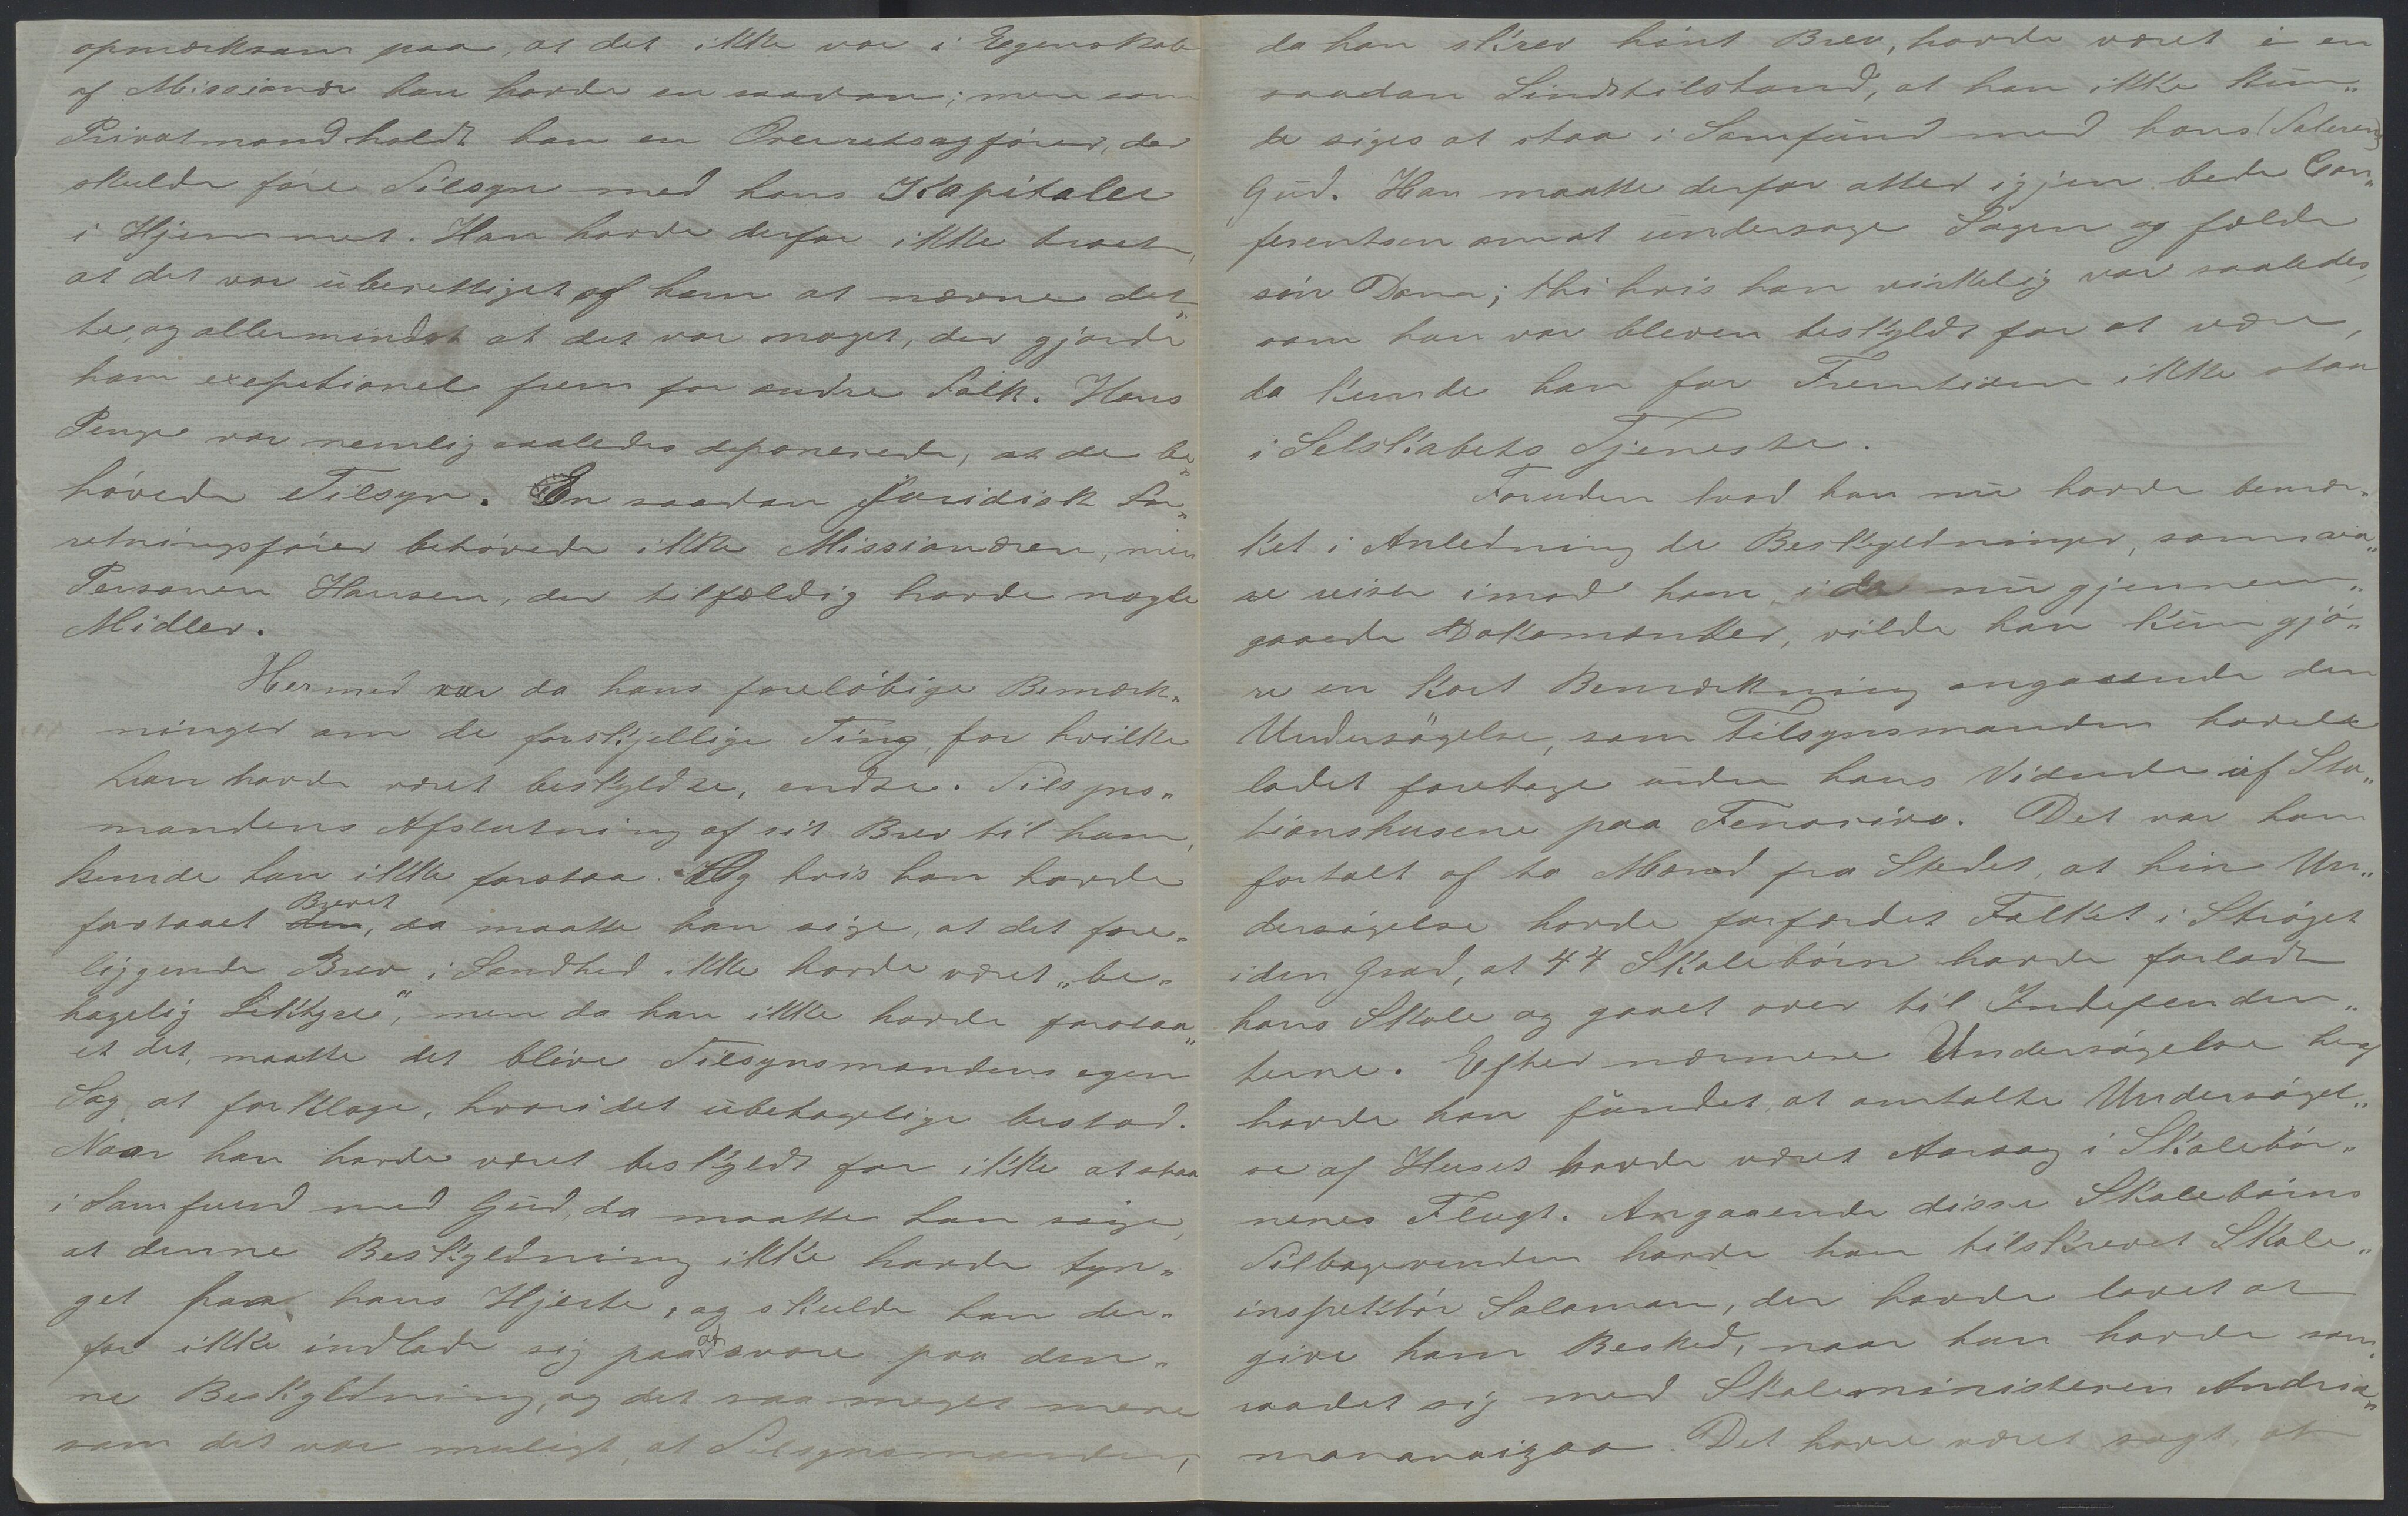 opmærksom paa, at det ikke var i Egenskab
af Missionær han havde en saadan; men som
Privatmand holdt han en Overretssagfører, der
skulde føre Tilsyn med hans Kapitaler
i Hjemmet. Han havde derfor ikke troet,
at det var uberettiget af ham at nævne det„
te, og allermindst at det var noget, der gjorde
ham exepetionel frem for andre Folk. Hans
Penge var nemlig saaledes deponerede, at de be„
høvede Tilsyn. En saadan juridisk For„
retningsfører behøvede ikke Missionæren, men
Personen Hansen, der tilfældig havde nogle
Midler.
Hermed var da hans foreløbige Bemærk„
ninger om de forskjellige Ting, for hvilke
han havde været beskyldte, endte. Tilsyns„
mandens Afslutning af sit Brev til ham,
kunde han ikke forstaa. Og hvis han havde
forstaaet den Brevet, da maatte han sige, at det fore„
liggende Brev i Sandhed ikke havde været „be„
hagelig Lektyre", men da han ikke havde forstaa„
et det, maatte det blive Tilsynsmandens egen
Sag at forklage, hvori det ubehagelige bestod.
Naar han havde været beskyldt for ikke at staa
i Samfund med Gud, da maatte han sige,
at denne Beskyldning ikke havde tyn„
get paa hans Hjerte, og skulde han der„
for ikke indlade sig paa at svare paa den„
ne Beskyldning, og det saa meget mere
som det var muligt, at Tilsynsmanden,
da han skrev hint Brev, havde været i en
saadan Sindstilstand, at han ikke kun„
de siges at staa i Samfund med hans (Talerens)
Gud. Han maatte derfor atter igjen bede Con„
ferentsen om at undersøge Sagen og fælde
sin Dom; thi hvis han virkelig var saaledes,
som han var bleven beskyldt for at være,
da kunde han for Fremtiden ikke staa
i Selskabets Tjeneste.
Foruden hvad han nu havde bemær„
ket i Anledning de Beskyldninger, som var
reiste imod ham, i de nu gjennem„
gaaede Dokomenter, vilde han kun gjø„
re en kort Bemærkning angaaende den
Undersøgelse, som Tilsynsmanden havde
ladet foretage uden hans Vidende af Sta„
tionshusene paa Fenoarivo. Det var ham
fortalt af to Mænd fra Stedet, at hin Un„
dersøgelse havde forfærdet Folket i Strøget
i den Grad, at 44 Skolebørn havde forladt
hans Skole og gaaet over til Independen„
terne. Efter nærmere Undersøgelse heraf
havde han fundet, at omtalte Undersøgel„
se af Huset havde været Aarsag i Skolebør„
nenes Flugt. Angaaende disse Skolebørns
Tilbagevenden havde han tilskrevet Skole„
inspektør Salomon, der havde lovet at
give ham Besked, naar han havde sam„
raadet sig med Skoleministeren Andria„
mananizao. Det havde været sagt, at